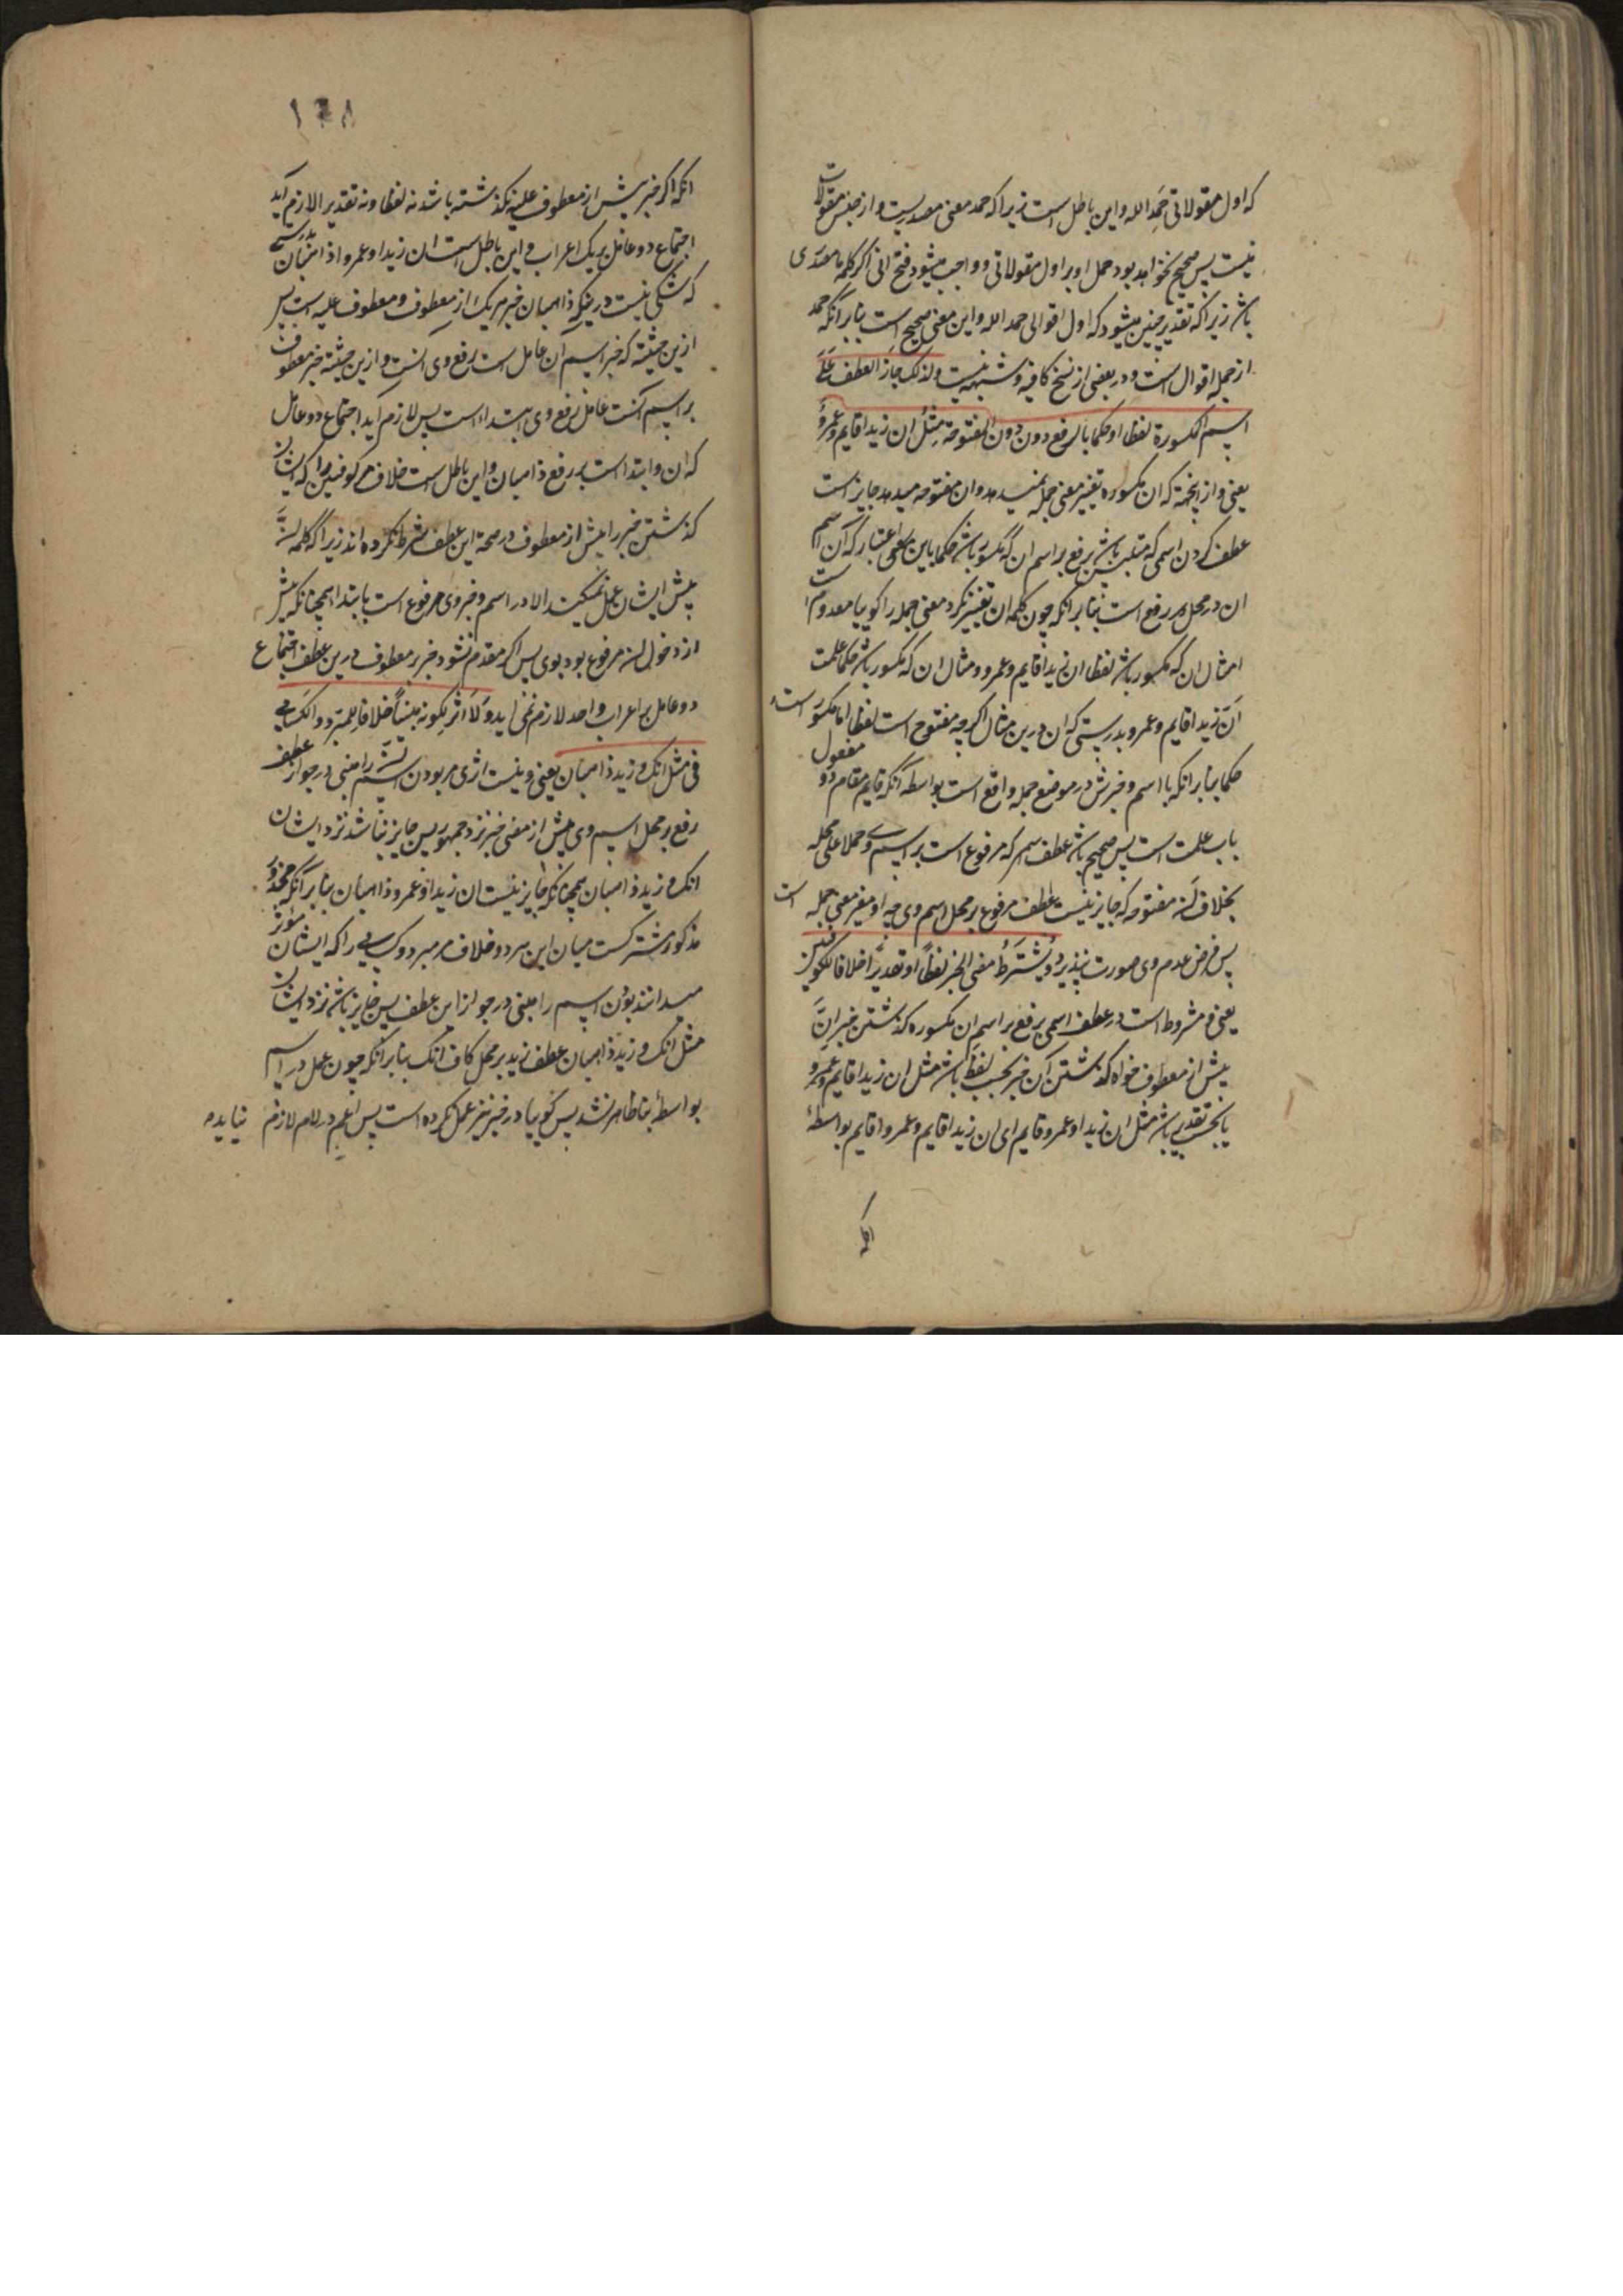 که اول مقولاتی حمد الله و این باطل است زیرا که حمد معنی مصدریست و از جنس مقولات
نیست پس صحیح نخواهد بود حمل او بر اول مقولاتی و واجب میشود فتح انی اگر کلمه ما مصدری
باشد زیرا که تقدیر چنین میشود که اول اقوالی حمد الله و این معنی صحیح است بنابر آنکه حمد
از جمله اقوال است و در بعضی از نسخ کافیه و شبهه نیست ولذلک جاز العطف علی
اسم المکسورة لفظا او حکما بالرفع دون المفتوحة مثل ان زیدا قایم و عمرو
یعنی و از اینجهة که ان مکسوره تغییر معنی جمله نمیدهد و ان مفتوحه میدهد جایز است
عطف کردن اسمی که متلبس باشد برفع بر اسم ان که مکسور باشد حکما باین اعتبار که آن اسم
ان در محل رفع است بنابر آنکه چون کلمه ان تغییر نکرد معنی جمله را گوییا معدوم است
مثال ان که مکسور باشد لفظا ان زیدا قایم و عمرو و مثال ان که مکسور باشد حکما علمت
ان زیدا قایم و عمرو بدرستی که ان درین مثال اگر چه مفتوح است لفظا اما مکسور است
حکما بنابر آنکه با اسم و خبرش در موضع جمله واقع است بواسطه آنکه قایم مقام دو مفعول
باب علمت است پس صحیح باشد عطف اسم که مرفوع است بر اسم وی حملا علی محله
بخلاف ان مفتوحه که جایز نیست عطف مرفوع بر محل اسم وی چه او مغیر معنی جمله است
پس فرض عدم وی صورت نپذیرد و یشترط مضی الخبر لفظا او تقدیرا خلافا للکوفیین
یعنی و مشروط است در عطف اسمی برفع بر اسم ان مکسوره گذشتن خبر ان
پیش از معطوف خواه گذشتن آن خبر بحسب لفظ باشد مثل ان زیدا قایم و عمرو
یا بحسب تقدیر باشد مثل ان زیدا و عمرو قایم ای ان زیدا قایم و عمرو قایم بواسطهٔ
۱۴۸
انکه اگر خبر پیش از معطوف علیه نگذشته باشد نه لفظا و نه تقدیرا لازم آید
اجتماع دو عامل بر یک اعراب و این باطل است ان زیدا و عمرو ذاهبان بدرستی
که شکی نیست درینکه ذاهبان خبر هر یک از معطوف و معطوف علیه است پس
ازین حیثیة که خبر اسم ان عامل است رفع وی انست و ازین حیثیة خبر معطوف
بر اسم آنست عامل رفع وی ابتدا است پس لازم آید اجتماع دو عامل
که ان و ابتدا است بر رفع ذاهبان و این باطل است خلاف مر کوفیین را که ایشان
گذشتن خبر را پیش از معطوف در صحة این عطف شرط نکرده اند زیرا که کلمه ان
پیش ایشان عمل نمیکند الا در اسم و خبر وی مرفوع است بابتدا همچنانکه پیش
از دخول ان مرفوع بود بوی پس اگر مقدم نشود خبر بر معطوف درین عطف اجتماع
دو عامل بر اعراب واحد لازم نمی اید و لا اثر لکونه مبنیا خلافا للمبرد و الکسایی
فی مثل انک و زید ذاهبان یعنی و نیست اثری مر بودن اسم ان را مبنی در جواز عطف
رفع بر محل اسم وی پیش از مضی خبر نزد جمهور پس جایز نباشد نزد ایشان
انک و زید ذاهبان همچنانکه جایز نیست ان زیدا و عمرو ذاهبان بنابر آنکه محذور
مذکور مشترکست میان این هر دو خلاف مر مبرد و کسایی را که ایشان مؤثر
میدانند بودن اسم را مبنی در جواز این عطف پس جایز باشد نزد ایشان
مثل انک و زید ذاهبان عطف زید بر محل کاف انک بنابر آنکه چون عمل در اسم
بواسطهٔ بنا ظاهر نشد پس گوییا در خبر نیز عمل نکرده است پس لازم نیاید